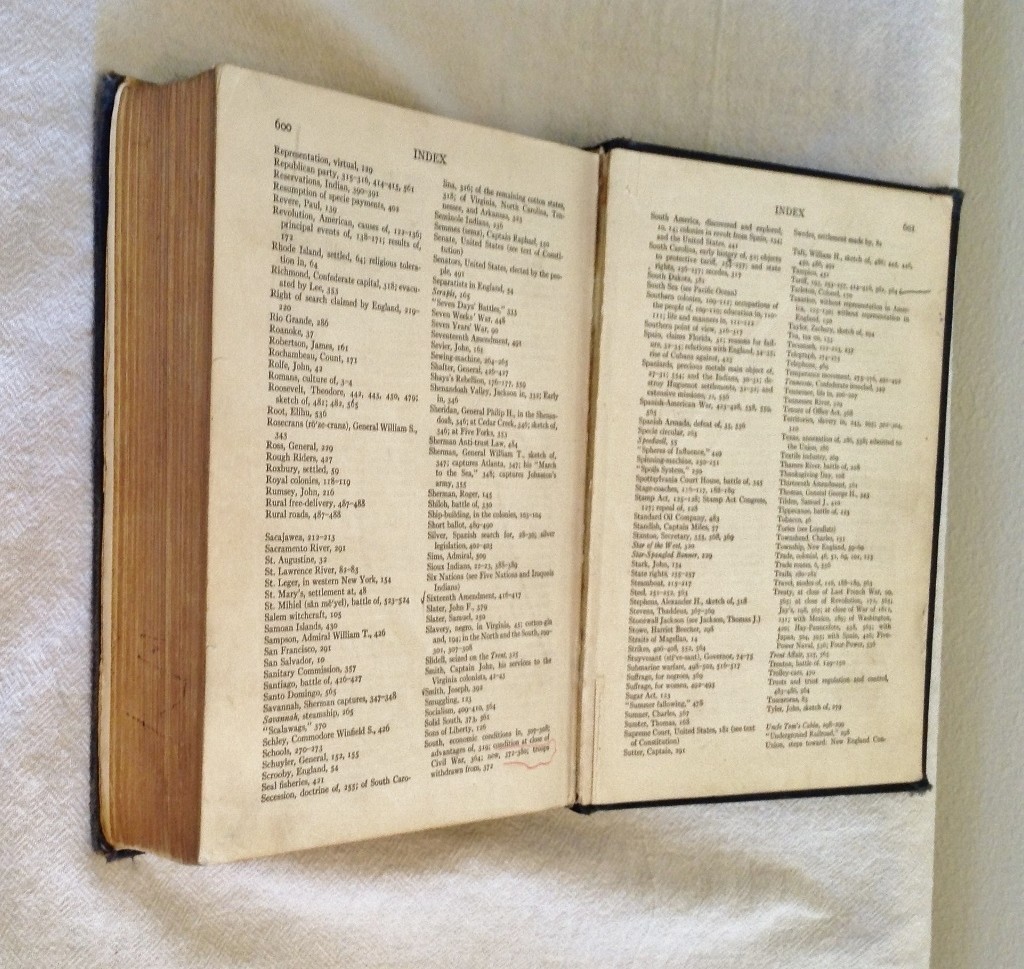 600
INDEX
Representation, virtual, 129
Republican party, 315-316, 414-415, 561
Reservations, Indian, 390-391
Resumption of specie payments, 402
Revere, Paul, 139
Revolution, American, causes of, 122-136;
principal events of, 138-171; results of,
172
Rhode Island, settled, 64; religious tolera-
tion in, 64
Richmond, Confederate capital, 318; evacu-
ated by Lee, 353
Right of search claimed by England, 219-
220
Rio Grande, 286
Roanoke, 37
Robertson, James, 161
Rochambeau, Count, 171
Rolfe, John, 42
Romans, culture of, 3-4
Roosevelt, Theodore, 442, 445, 450, 479;
sketch of, 481; 482, 565
Root, Elihu, 536
Rosecrans (rō'ze-crans), General William S.,
343
Ross, General, 229
Rough Riders, 427
Roxbury, settled, 59
Royal colonies, 118-119
Rumsey, John, 216
Rural free-delivery, 487-488
Rural roads, 487-488
Sacajawea, 212-213
Sacramento River, 291
St. Augustine, 32
St. Lawrence River, 82-83
St. Leger, in western New York, 154
St. Mary's, settlement at, 48
St. Mihiel (săn mē'yel), battle of, 523-524
Salem witchcraft, 105
Samoan Islands, 430
Sampson, Admiral William T., 426
San Francisco, 291
San Salvador, 10
Sanitary Commission, 357
Santiago, battle of, 426-427
Santo Domingo, 565
Savannah, Sherman captures, 347-348
Savannah, steamship, 265
"Scalawags," 370
Schley, Commodore Winfield S., 426
Schools, 270-273
Schuyler, General, 152, 155
Scrooby, England, 54
Seal fisheries, 421
Secession, doctrine of, 255; of South Caro-
lina, 316; of the remaining cotton states,
318; of Virginia, North Carolina, Ten-
nessee, and Arkansas, 323
Seminole Indians, 236
Semmes (sems), Captain Raphael,
Senate, United States (see text of Consti-
tution)
Senators, United States, elected by the peo-
ple, 491
Separatists in England, 54
Serapis, 165
"Seven Days' Battles," 333
Seven Weeks' War, 448
Seven Years' War, 90
Seventeenth Amendment, 491
Sevier, John, 163
Sewing-machine, 264-265
Shafter, General, 426-427
Shays's Rebellion, 176-177,
Shenandoah Valley, Jackson in, 332; Early
in, 346
Sheridan, General Philip H., in the Shenan-
doah, 346; at Cedar Creek, 346; sketch of,
346; at Five Forks, 353
Sherman Anti-trust Law, 484
Sherman, General William T., sketch of,
347; captures Atlanta, 347; his "March
to the Sea," 348; captures Johnston's
army, 355
Sherman, Roger, 145
Shiloh, battle of, 330
Ship-building, in the colonies, 103-104
Short ballot, 489-490
Silver, Spanish search for, 28-30; silver
legislation, 402-403
Sims, Admiral, 509
Sioux Indians, 22-23, 388-389
Six Nations (see Five Nations and Iroquois
Indians)
Sixteenth Amendment, 416-417
Slater, John F., 379
Slater, Samuel, 250
Slavery, negro, in Virginia, 45; cotton-gin
and, 194; in the North and the South,
301, 307-308
Slidell, seized on the Trent, 327
Smith, Captain John, his services to the
Virginia colonies, 42-43
Smith, Joseph, 392
Smuggling, 123
Socialism, 409-410, 564
Solid South, 373, 561
Sons of Liberty, 126
South, economic conditions in, 307-308;
advantages of, 319; condition at close of
Civil War, 364; new, 372-380; troops
withdrawn from, 372
INDEX
601
South America, discovered and explored,
10, 14; colonies in revolt from Spain, 234;
and the United States, 441
South Carolina, early history of, 51; objects
to protective tariff, 254-257; and state
rights, 256-257; secedes, 317
South Dakota, 562
South Sea (see Pacific Ocean)
Southern colonies, 109-112; occupations of
the people of, 109-110; education in, 110-
111; life and manners in, 111-112
Southern point of view, 316-317
Spain, claims Florida, 31; reasons for fail-
ure, 32-34; relations with England, 34-36;
rise of Cubans against, 425
Spaniards, precious metals main object of,
27-31; 354; and the Indians, 30-31; de-
stroy Huguenot settlements, 31-32; and
extensive missions, 32, 536
Spanish-American War, 425-428, 558, 559,
565
Spanish Armada, defeat of, 35, 536
Specie circular, 263
Speedwell, 55
"Spheres of Influence," 449
Spinning-machine, 250-251
"Spoils System," 250
Spottsylvania Court House, battle of, 345
Stage-coaches, 116-117, 188-189
Stamp Act, 125-128; Stamp Act Congress,
127; repeal of, 128
Standard Oil Company, 483
Standish, Captain Miles, 57
Stanton, Secretary, 353, 368, 369
Star of the West, 320
Star-Spangled Banner, 229
Stark, John, 154
State rights, 255-257
Steamboat, 215-217
Steel, 251-252, 564
Stephens, Alexander H., sketch of, 318
Stevens, Thaddeus, 367-369
Stonewall Jackson (see Jackson, Thomas J.)
Stowe, Harriet Beecher, 298
Straits of Magellan, 14
Strikes, 406-408, 552, 564
Stuyvesant (stī've-sant), Governor, 74-75
Submarine warfare, 498-502, 516-517
Suffrage, for negroes, 369
Suffrage, for women, 492-493
Sugar Act, 123
"Summer fallowing," 478
Sumner, Charles, 367
Sumter, Thomas, 168
Supreme Court, United States, 181 (see text
of Constitution)
Sutter, Captain, 291
Sweden, settlement made by, 82
Taft, William H., sketch of,
Tampico, 452
Tariff,
Tarleton, Colonel, 170
Taxation, without representation in Amer-
ica, 125-130; without representation in
England,
Taylor, Zachary, sketch of,
Tea, tax on,
Tecumseh,
Telegraph,
Telephone,
Temperance movement,
Tennessee, Confederate ironclad,
Tennessee, life in,
Tennessee River,
Tenure of Office Act, 368
Territories, slavery in,
Texas, annexation of, admitted to
the Union,
Textile industry,
Thames River, battle of,
Thanksgiving Day,
Thirteenth Amendment,
Thomas, General George H.,
Tilden, Samuel J.,
Tippecanoe, battle of,
Tobacco, 46
Tories (see Loyalists)
Townshend, Charles,
Township, New England,
Trade, colonial,
Trade routes,
Trails,
Travel, modes of, 116, 188-189, 564
Treaty, at close of Last French War,
at close of Revolution,
Jay's, at close of War of 1812,
with Mexico, of Washington,
Hay-Pauncefote, with
Japan, with Spain, Five-
Power Naval, 536; Four-Power, 536
Trent Affair, 327,
Trenton, battle of, 149-150
Trolley-cars, 470
Trusts and trust regulation and control,
483-486, 564
Tuscaroras,
Tyler, John, sketch of, 279
Uncle Tom's Cabin, 298-299
"Underground Railroad," 298
Union, steps toward: New England Con-